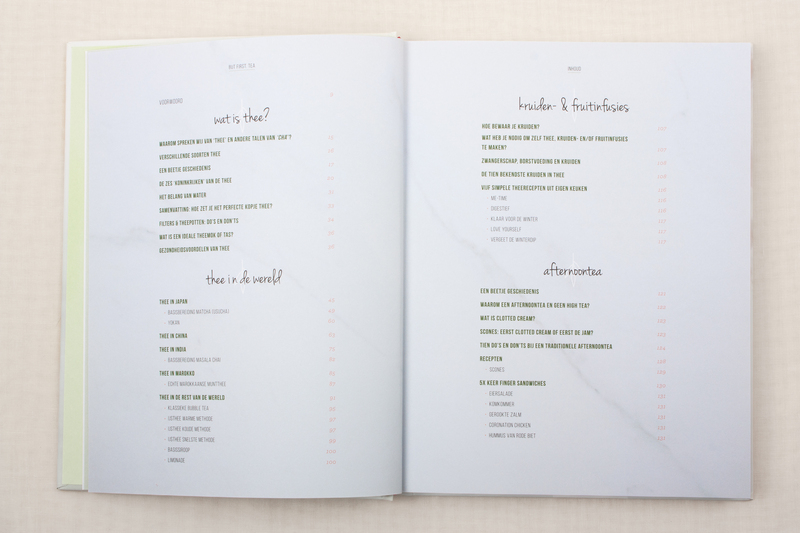 BUT FIRST TEA
VOORWOORD
wat is thee?
WAAROM SPREKEN WIJ VAN 'THEE' EN ANDERE TALEN VAN 'CHA'?
VERSCHILLENDE SOORTEN THEE
EEN BEETJE GESCHIEDENIS
DE ZES 'KONINKRIJKEN' VAN DE THEE
HET BELANG VAN WATER
SAMENVATTING: HOE ZET JE HET PERFECTE KOPJE THEE?
FILTERS & THEEPOTTEN: DO'S EN DON'TS
WAT IS EEN IDEALE THEEMOK OF TAS?
GEZONDHEIDSVOORDELEN VAN THEE
thee in de wereld
THEE IN JAPAN
- BASISBEREIDING MATCHA (USUCHA)
- YOKAN
THEE IN CHINA
THEE IN INDIA
- BASISBEREIDING MASALA CHAI
THEE IN MAROKKO
- ECHTE MAROKKAANSE MUNTTHEE
THEE IN DE REST VAN DE WERELD
- KLASSIEKE BUBBLE TEA
- IJSTHEE WARME METHODE
- IJSTHEE KOUDE METHODE
- IJSTHEE SNELSTE METHODE
- BASISSIROOP
- LIMONADE
INHOUD
kruiden- & fruitinfusies
HOE BEWAAR JE KRUIDEN?
WAT HEB JE NODIG OM ZELF THEE, KRUIDEN- EN/OF FRUITINFUSIES
TE MAKEN?
ZWANGERSCHAP, BORSTVOEDING EN KRUIDEN
DE TIEN BEKENDSTE KRUIDEN IN THEE
VIJF SIMPELE THEERECEPTEN UIT EIGEN KEUKEN
- ME-TIME
- DIGESTIEF
- KLAAR VOOR DE WINTER
- LOVE YOURSELF
- VERGEET DE WINTERDIP
afternoontea
EEN BEETJE GESCHIEDENIS
WAAROM EEN AFTERNOONTEA EN GEEN HIGH TEA?
WAT IS CLOTTED CREAM?
SCONES: EERST CLOTTED CREAM OF EERST DE JAM?
TIEN DO'S EN DON'TS BIJ EEN TRADITIONELE AFTERNOONTEA
RECEPTEN
- SCONES
5X KEER FINGER SANDWICHES
- EIERSALADE
- KOMKOMMER
- GEROOKTE ZALM
- CORONATION CHICKEN
- HUMMUS VAN RODE BIET